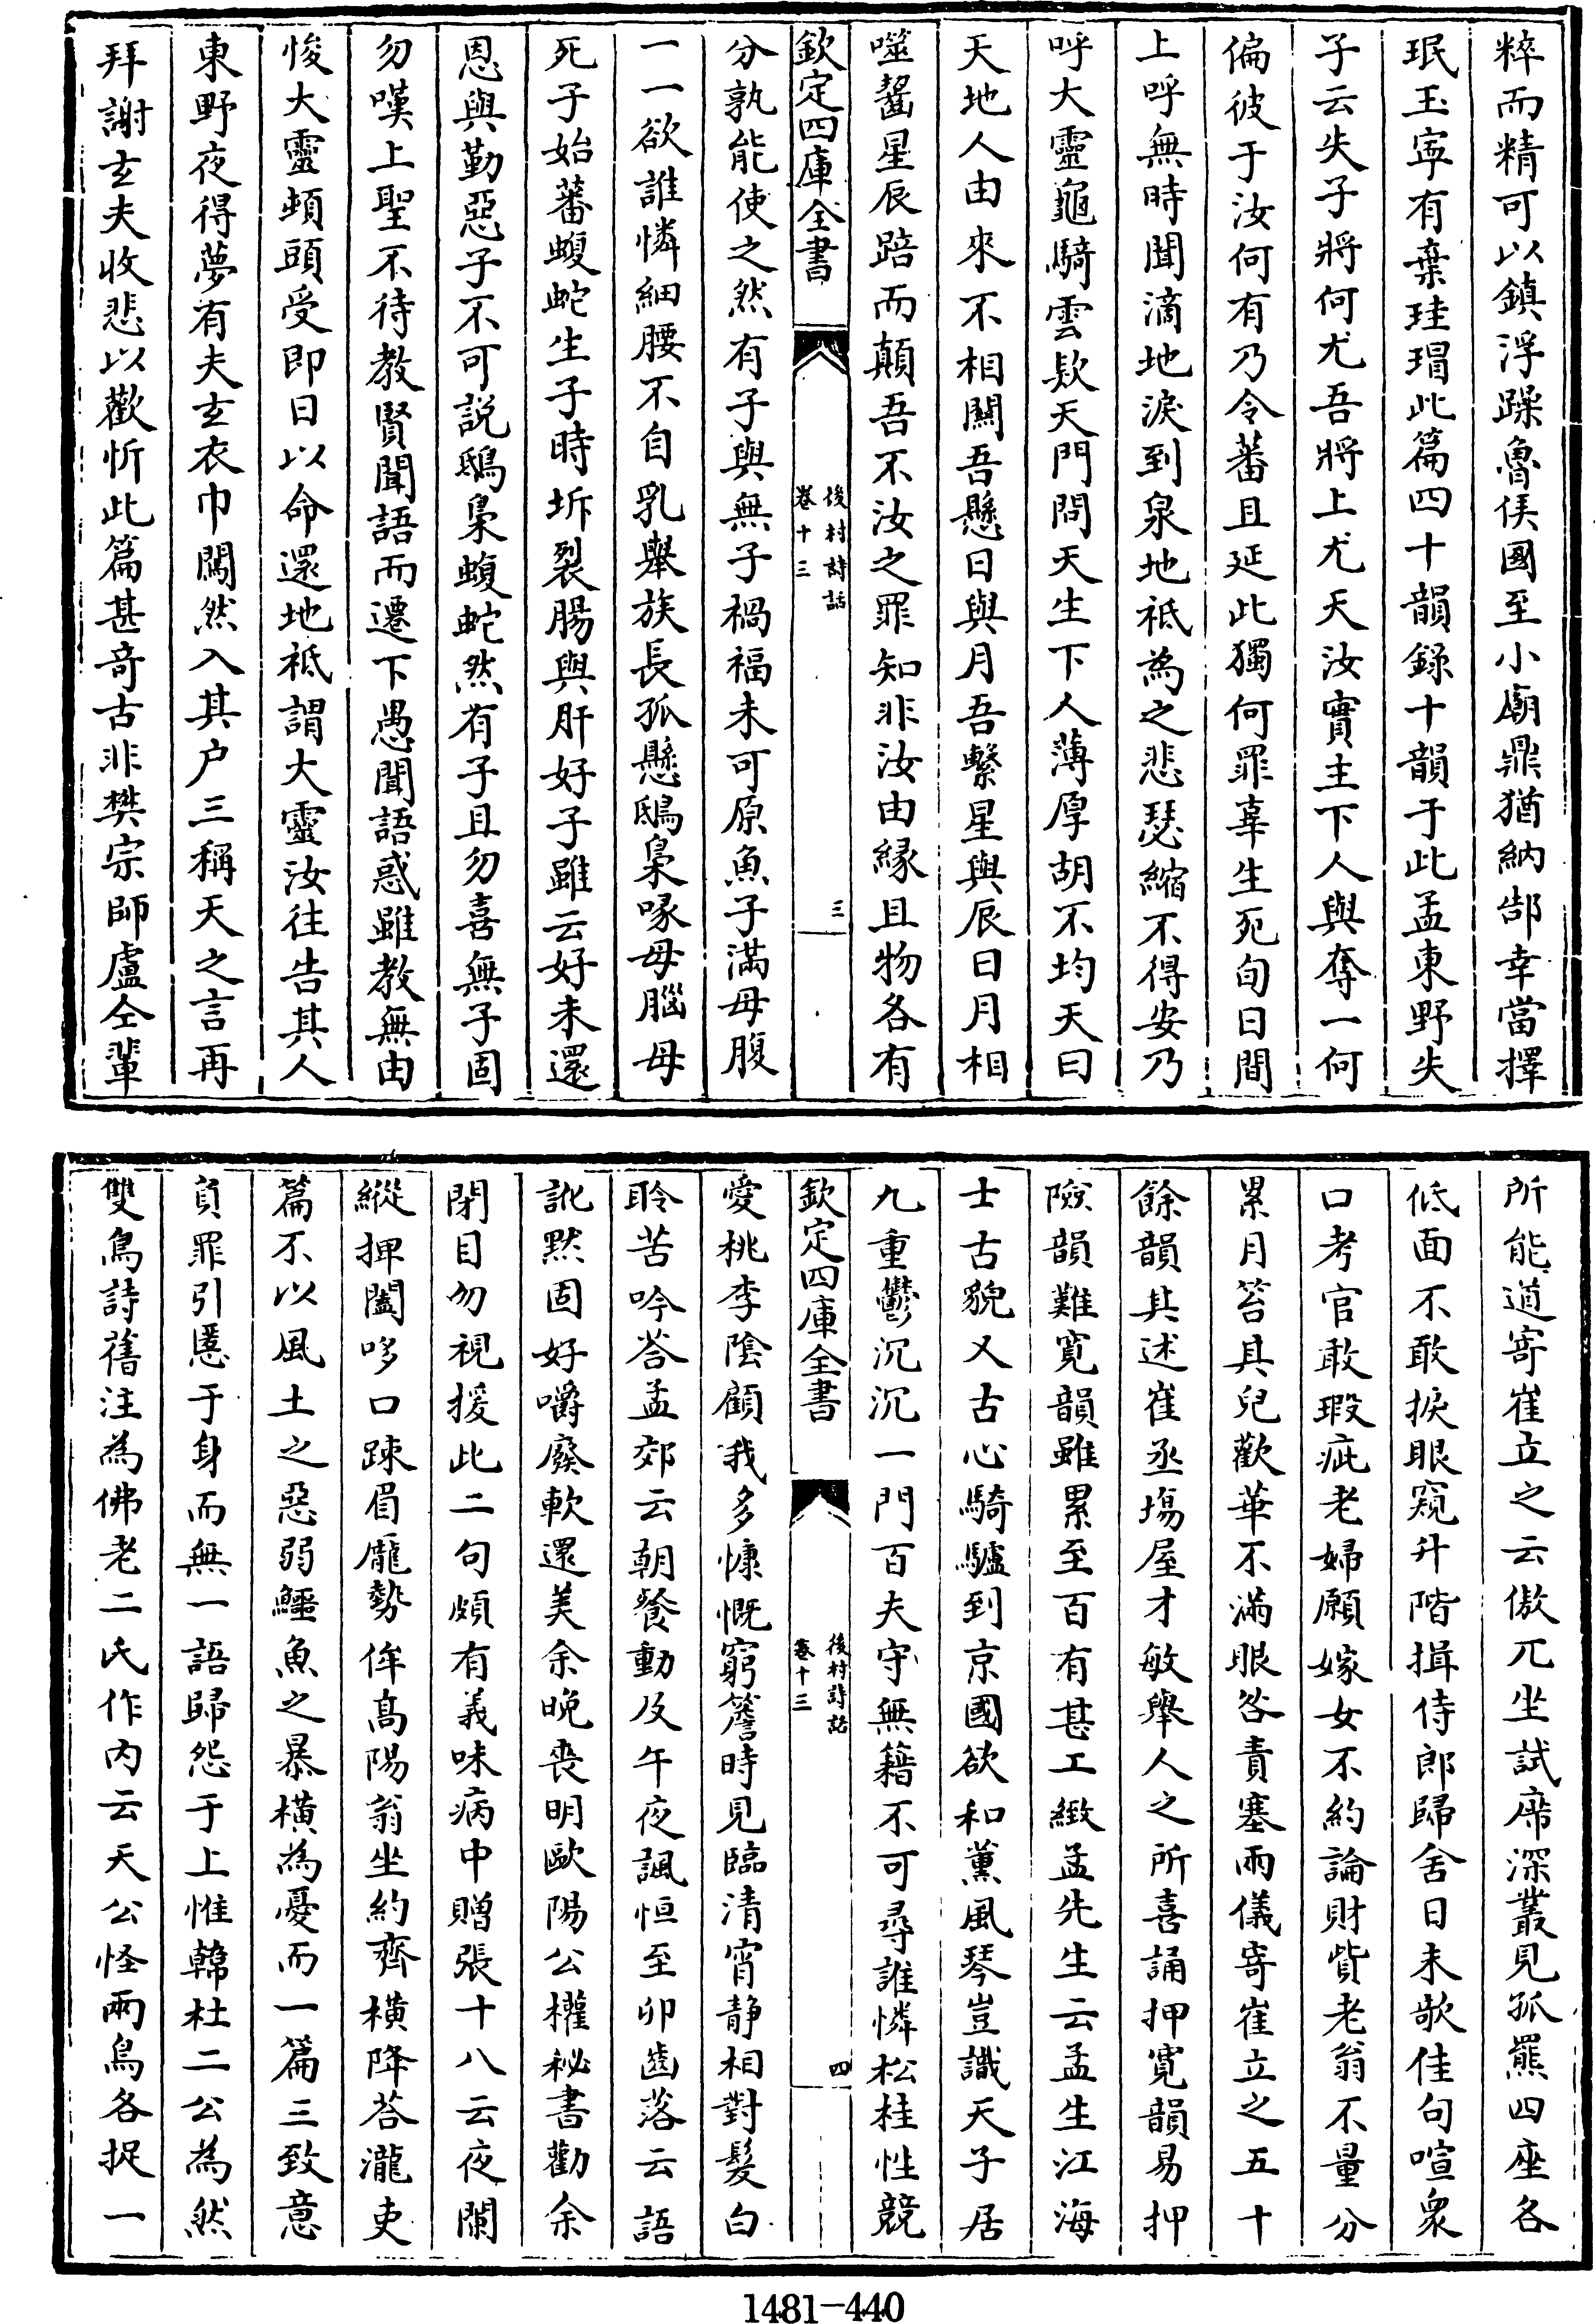 粹而精可以鎮浮躁魯侯國至小廟鼎猶納郜幸當擇
珉玉寜有棄珪瑁此篇四十韻録十韻于此孟東野失
子云失子將何尤吾將上尤天汝實主下人與奪一何
偏彼于汝何有乃令蕃且延此獨何罪辜生死旬日間
上呼無時聞滴地淚到泉地祗為之悲瑟縮不得安乃
呼大靈龜騎雲欵天門問天生下人薄厚胡不均天曰
天地人由來不相闗吾懸日與月吾繫星與辰日月相
噬齧星辰踣而顛吾不汝之罪知非汝由縁且物各有
欽定四庫全書
後村詩話
卷十三
三
分孰能使之然有子與無子禍福未可原魚子滿母腹
一一欲誰憐細腰不自乳舉族長孤懸鴟梟啄母腦母
死子始蕃蝮蛇生子時坼裂腸與肝好子雖云好未還
恩與勤惡子不可説鴟梟蝮蛇然有子且勿喜無子固
勿嘆上聖不待教賢聞語而遷下愚聞語惑雖教無由
悛大靈頓頭受即日以命還地祗謂大靈汝往告其人
東野夜得夢有夫玄衣巾闖然入其户三稱天之言再
拜謝玄夫收悲以歡忻此篇甚奇古非樊宗師盧仝輩
所能道寄崔立之云傲兀坐試席深叢見孤羆四座各
低面不敢捩眼窺升階揖侍郎歸舍日未欹佳句喧衆
口考官敢瑕疵老婦願嫁女不約論財貲老翁不量分
累月笞其兒歡華不滿眼咎責塞兩儀寄崔立之五十
餘韻其述崔丞塲屋才敏舉人之所喜誦押寛韻易押
險韻難寛韻雖累至百有甚工緻孟先生云孟生江海
士古貌又古心騎驢到京國欲和薫風琴豈識天子居
九重鬱沉沉一門百夫守無籍不可尋誰憐松桂性競
欽定四庫全書
後村詩話
卷十三
四
愛桃李陰顧我多慷慨窮簷時見臨清宵静相對髮白
聆苦吟荅孟郊云朝餐動及午夜諷恒至卯齒落云語
訛黙固好嚼廢軟還美余晚喪明歐陽公權祕書勸余
閉目勿視援此二句頗有義味病中贈張十八云夜闌
縱捭闔哆口踈眉厖勢侔高陽翁坐約齊横降荅瀧吏
篇不以風土之惡弱鱷魚之暴横為憂而一篇三致意
負罪引慝于身而無一語歸怨于上惟韓杜二公為然
雙鳥詩舊注為佛老二氏作内云天公怪兩鳥各捉一
1481—440